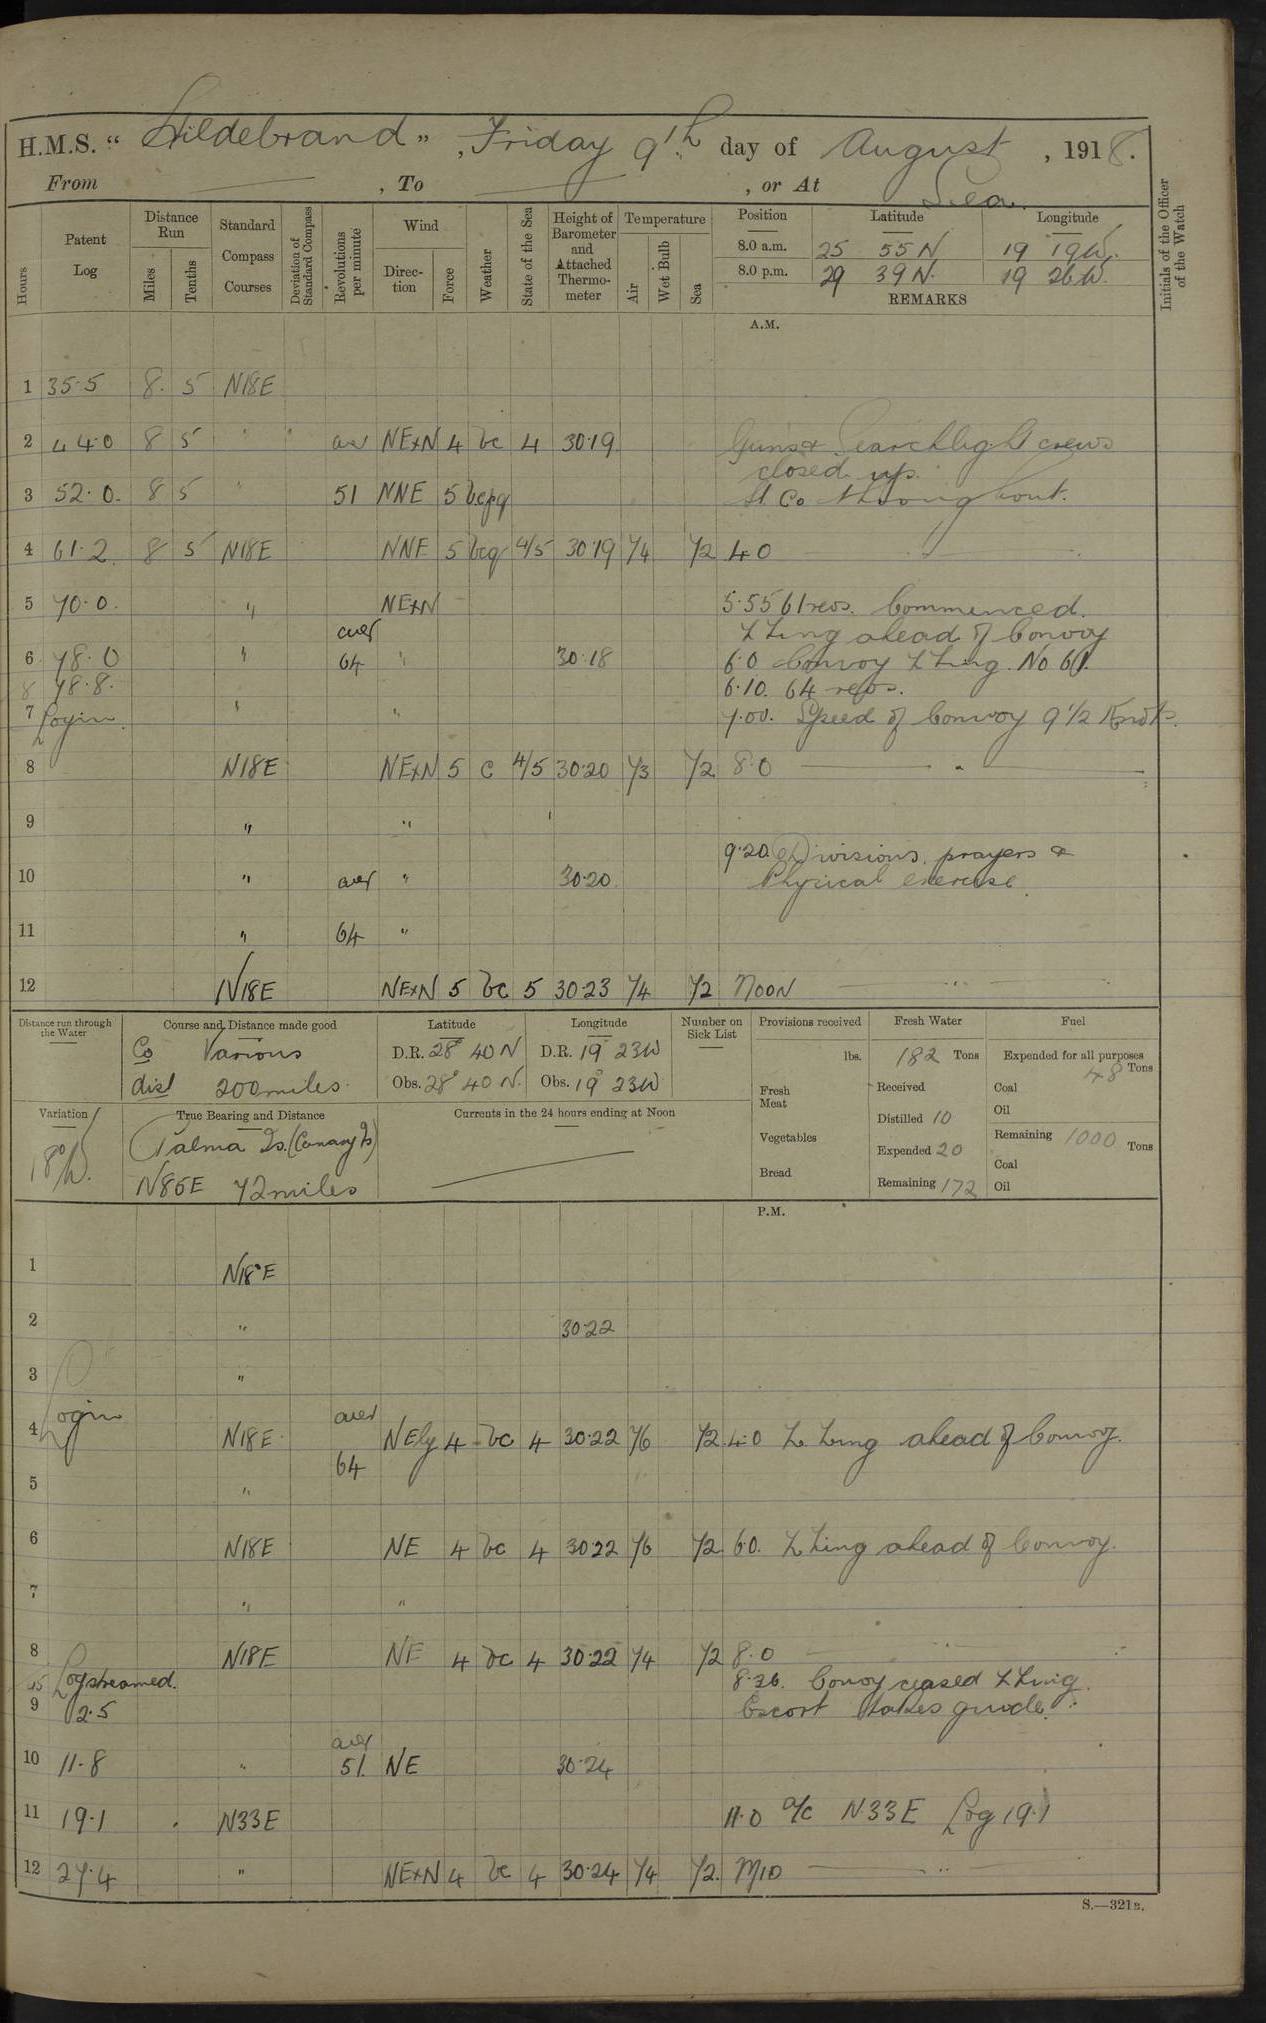 H.M.S. "Hildebrand", Friday 9th day of August, 1918.
From — , To — , or At Sea.
Hours
Patent Log
Distance Run
Miles
Tenths
Standard Compass Courses
Deviation of Standard Compass
Revolutions per minute
Wind
Direction
Force
Weather
State of the Sea
Height of Barometer and Attached Thermometer
Temperature
Air
Wet Bulb
Sea
Position Latitude Longitude
8.0 a.m. 25 55 N 19 19 W.
8.0 p.m. 29 39 N. 19 26 W.
REMARKS
Initials of the Officer of the Watch
A.M.
1 35.5 8. 5 N18E
2 44.0 8 5 " aver NExN 4 bc 4 30.19 Guns & Searchlight crews
closed up.
3 52.0. 8 5 " 51 NNE 5 bcpq St Co throughout.
4 61.2 8 5 N18E NNE 5 bcq 4/5 30.19 74 72 4.0 "
5 70.0. " NExN 5.55 61 revs. Commenced.
aver Z Zing ahead of Convoy
6 78.0 " 64 " 30.18 6.0 Convoy Z Zing. No 61.
8 78.8. 6.10. 64 revs.
7 Log in " " 7.00. Speed of Convoy 9 1/2 Knots.
8 N18E NExN 5 c 4/5 30.20 73 72 8.0 — " —
9 " "
9.20. Divisions, prayers &
10 " aver " 30.20 Physical exercise.
11 " 64 "
12 N18E NExN 5 bc 5 30.23 74 72 NOON — " —
Distance run through the Water
Course and Distance made good
Co Various
dist 200 miles.
Latitude
D.R. 28° 40 N
Obs. 28° 40 N.
Longitude
D.R. 19° 23 W
Obs. 19° 23 W
Number on Sick List
—
Provisions received
lbs.
Fresh Meat
Vegetables
Bread
Fresh Water
182 Tons
Received
Distilled 10
Expended 20
Remaining 172
Fuel
Expended for all purposes
48 Tons
Coal
Oil
Remaining 1000 Tons
Coal
Oil
Variation
18°W.
True Bearing and Distance
Palma Is. (Canary Is)
N86E 72 miles
Currents in the 24 hours ending at Noon
P.M.
1 N18°E
2 " 30.22
3 "
Log in aver
4 N18E. NEly 4 bc 4 30.22 76 72 4.0 Z Zing ahead of Convoy.
64
5 "
6 N18E NE 4 bc 4 30.22 76 72 6.0. Z Zing ahead of Convoy.
7 " "
8 N18E NE 4 bc 4 30.22 74 72 8.0 "
45 Log streamed. 8.36. Convoy ceased Z Zing.
9 2.5 Escort takes guide.
aver
10 11.8 " 51. NE 30.24
11 19.1 N33E 11.0 a/c N33E Log 19.1
12 27.4 " NExN 4 bc 4 30.24 74 72. MID — " —
S.—321B.